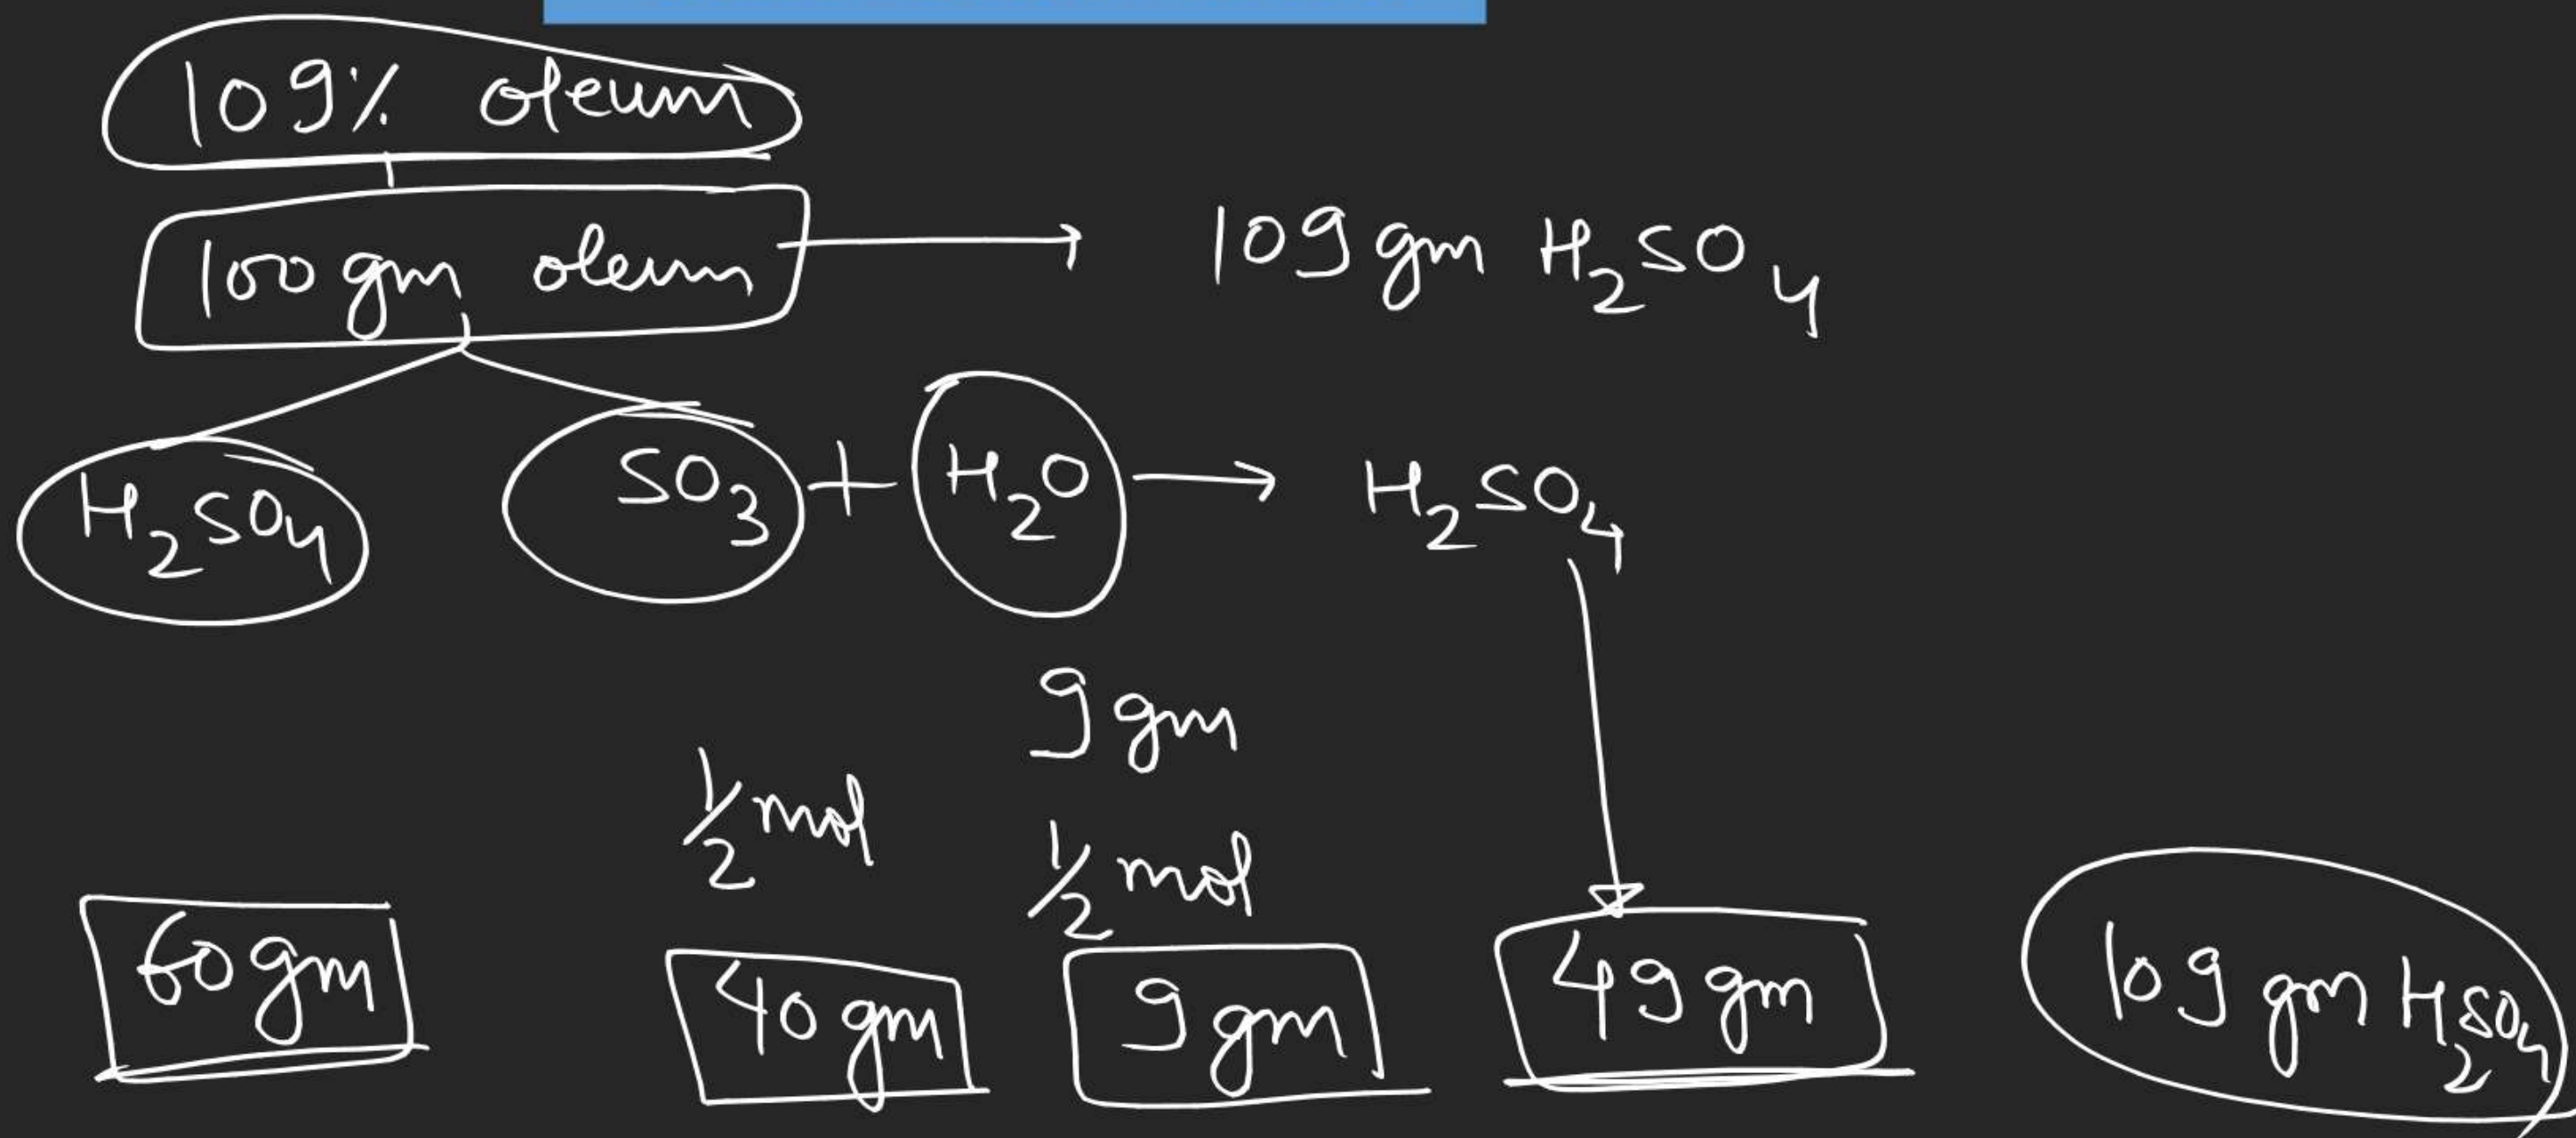 109% oleum
100 gm oleum → 109 gm H₂SO₄
H₂SO₄ SO₃ + H₂O → H₂SO₄
9 gm
1/2 mol 1/2 mol
60 gm 40 gm 9 gm 49 gm 109 gm H₂SO₄